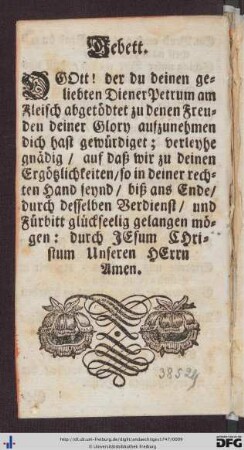 Gebett.
O GOtt! der du deinen ge-
liebten Diener Petrum am
Fleisch abgetödtet zu denen Freu-
den deiner Glory aufzunehmen
dich hast gewürdiget; verleyhe
gnädig / auf daß wir zu deinen
Ergötzlichkeiten / so in deiner rech-
ten Hand seynd / biß ans Ende /
durch desselben Verdienst / und
Fürbitt glückseelig gelangen mö-
gen: durch JEsum CHri-
stum Unseren HErrn
Amen.
38524
© Universitätsbibliothek Freiburg
DFG